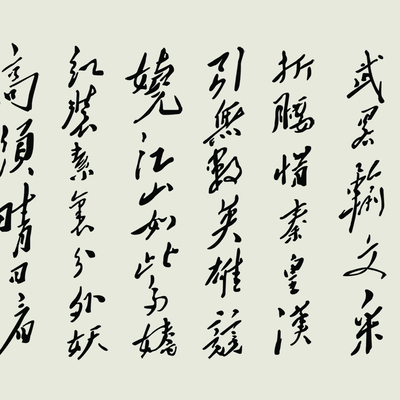 武畧輸文采
折腰惜秦皇漢
引無數英雄競
嬈江山如此多嬌
紅裝素裹分外妖
高須晴日看